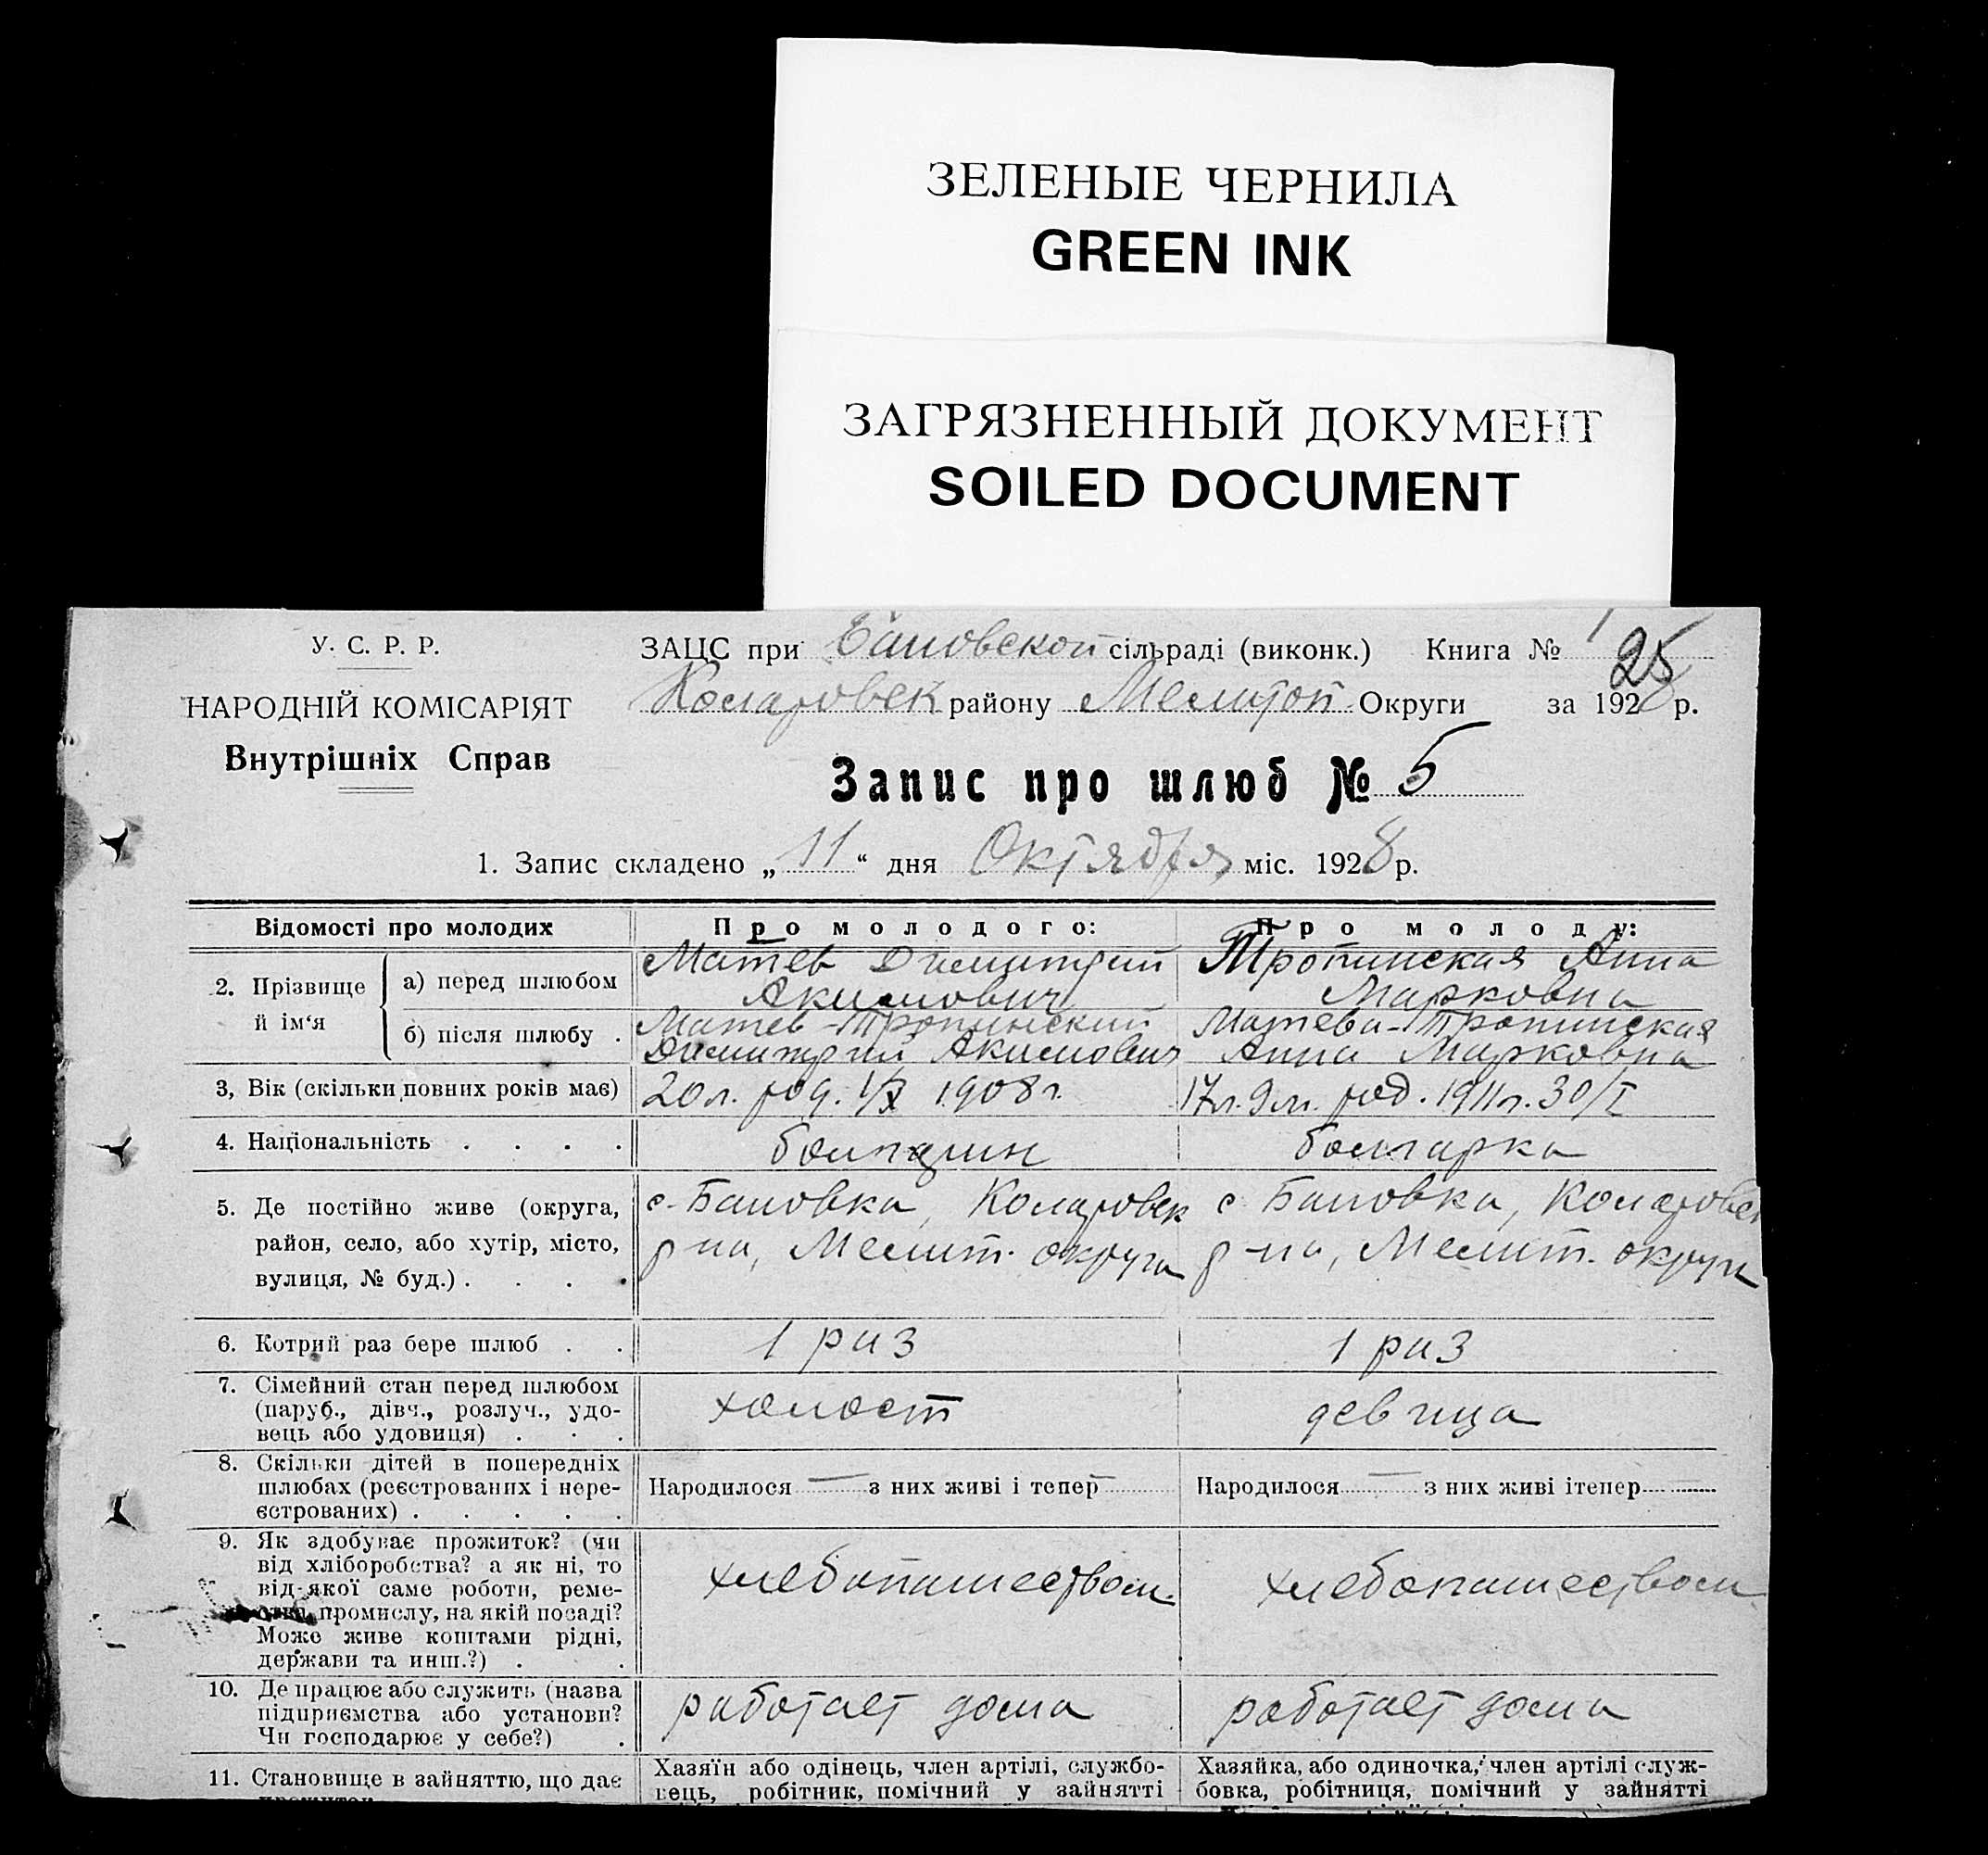 ЗЕЛЕНЫЕ ЧЕРНИЛА
GREEN INK
ЗАГРЯЗНЕННЫЙ ДОКУМЕНТ
SOILED DOCUMENT
У. С. Р. Р.
НАРОДНІЙ КОМІСАРІЯТ
Внутрішніх Справ
ЗАЦС при Бановской сільраді (виконк.) Книга № 1
25
Коларовск району Мелитоп. Округи за 1928 р.
Запис про шлюб № 5
1. Запис складено „11“ дня Октября міс. 1928 р.
Відомості про молодих
Про молодого:
Про молоду:
2. Прізвище й ім‘я
а) перед шлюбом
Матев Димитрий
Акимович
Тропинская Анна
Марковна
б) після шлюбу .
Матев-Тропинский
Димитрий Акимович
Матева-Тропинская
Анна Марковна
3, Вік (скільки повних років має)
20 л. род. 1/X 1908 г.
17 л. 9 м. род. 1911 г. 30/I
4. Національність . . . .
болгарин
болгарка
5. Де постійно живе (округа,
район, село, або хутір, місто,
вулиця, № буд.) . . . .
с. Бановка, Коларовск
р-на, Мелит. округа
с. Бановка, Коларовск
р-на, Мелит. округа
6. Котрий раз бере шлюб . .
1 раз
1 раз
7. Сімейний стан перед шлюбом
(паруб., дівч., розлуч., удо-
вець або удовиця) . . .
холост
девица
8. Скільки дітей в попередніх
шлюбах (реєстрованих і нере-
єстрованих) . . . . .
Народилося — з них живі і тепер
Народилося — з них живі ітепер
9. Як здобуває прожиток? (чи
від хліборобства? а як ні, то
від якої саме роботи, реме-
промислу, на якій посаді?
Може живе коштами рідні,
держави та инш.?) . .
хлебопашеством.
хлебопашеством
10. Де працює або служить (назва
підприємства або установи?
Чи господарює у себе?) .
работает дома
работает дома
11. Становище в зайняттю, що дає
Хазяїн або одінець, член артілі, службо-
вець, робітник, помічний у зайнятті
Хазяйка, або одиночка, член артілі служ-
бовка, робітниця, помічний у зайнятті